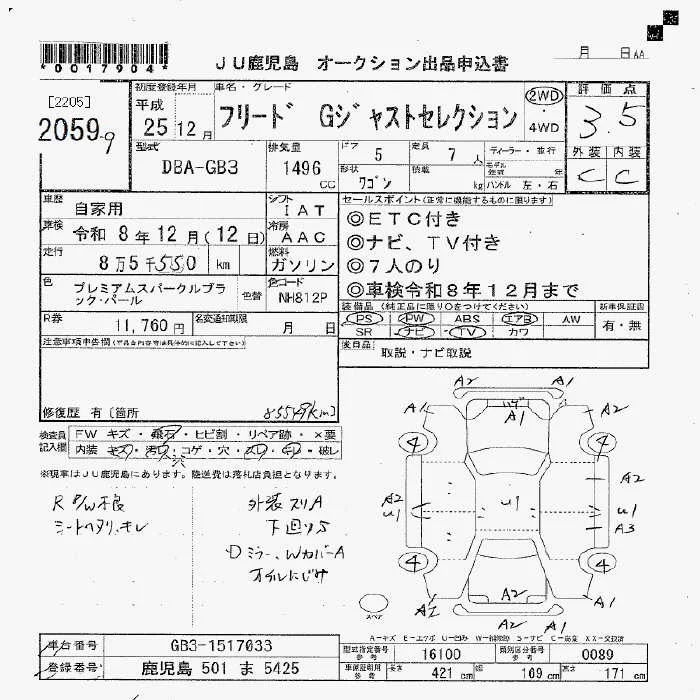 *0017904*
JU鹿児島 オークション出品申込書
月 日AA
[2205]
2059
初度登録年月
平成
25年12月
車名・グレード
フリード Gジャストセレクション
2WD
4WD
評価点
3.5
外装 内装
C C
型式
DBA-GB3
排気量
1496
CC
ドア 5
定員 7人
形状
ワゴン
積載
kg
ディーラー・並行
モデル
年式 年
ハンドル 左・右
車歴
自家用
車検
令和 8年12月(12日)
走行
8万5千550 km
シフト
IAT
冷房
AAC
燃料
ガソリン
セールスポイント(正常に機能するものに限ります)
◎ETC付き
◎ナビ、TV付き
◎7人のり
◎車検令和8年12月まで
色
プレミアムスパークルブラ
ック・パール
色替
色コード
NH812P
R券
11,760円
名変通知期限
月 日
装備品(純正品に限り○をつけてください)
PS PW ABS エアB AW
SR ナビ TV カワ
新車保証書
有・無
後日品
取説・ナビ取説
注意事項申告欄
修復歴 有〔箇所
85549km〕
検査員
記入欄
FW キズ・飛石・ヒビ割・リペア跡・×要
内装 キズ・汚れ・コゲ・穴・スレ・キレ・破レ
※現車はJU鹿児島にあります。陸送費は落札店負担となります。
R P/W不良
シートヘタリ、キレ
外装スリA
下廻りS
Dミラー、WカバーA
オイルにじみ
A2 A1
A1 ハゲ A1 A1
4 4
A2 A2
u1 u1 u1
A3
4 4
A2
A2 A1
スペア
A-キズ E-エクボ U-凹み W-補修跡 S-サビ C-腐食 XX-交換済
車台番号
GB3-1517033
登録番号
鹿児島 501 ま 5425
型式指定番号
参考
16100
類別区分番号
参考
0089
車検証明用
参考
長さ 421 cm
幅 169 cm
高さ 171 cm